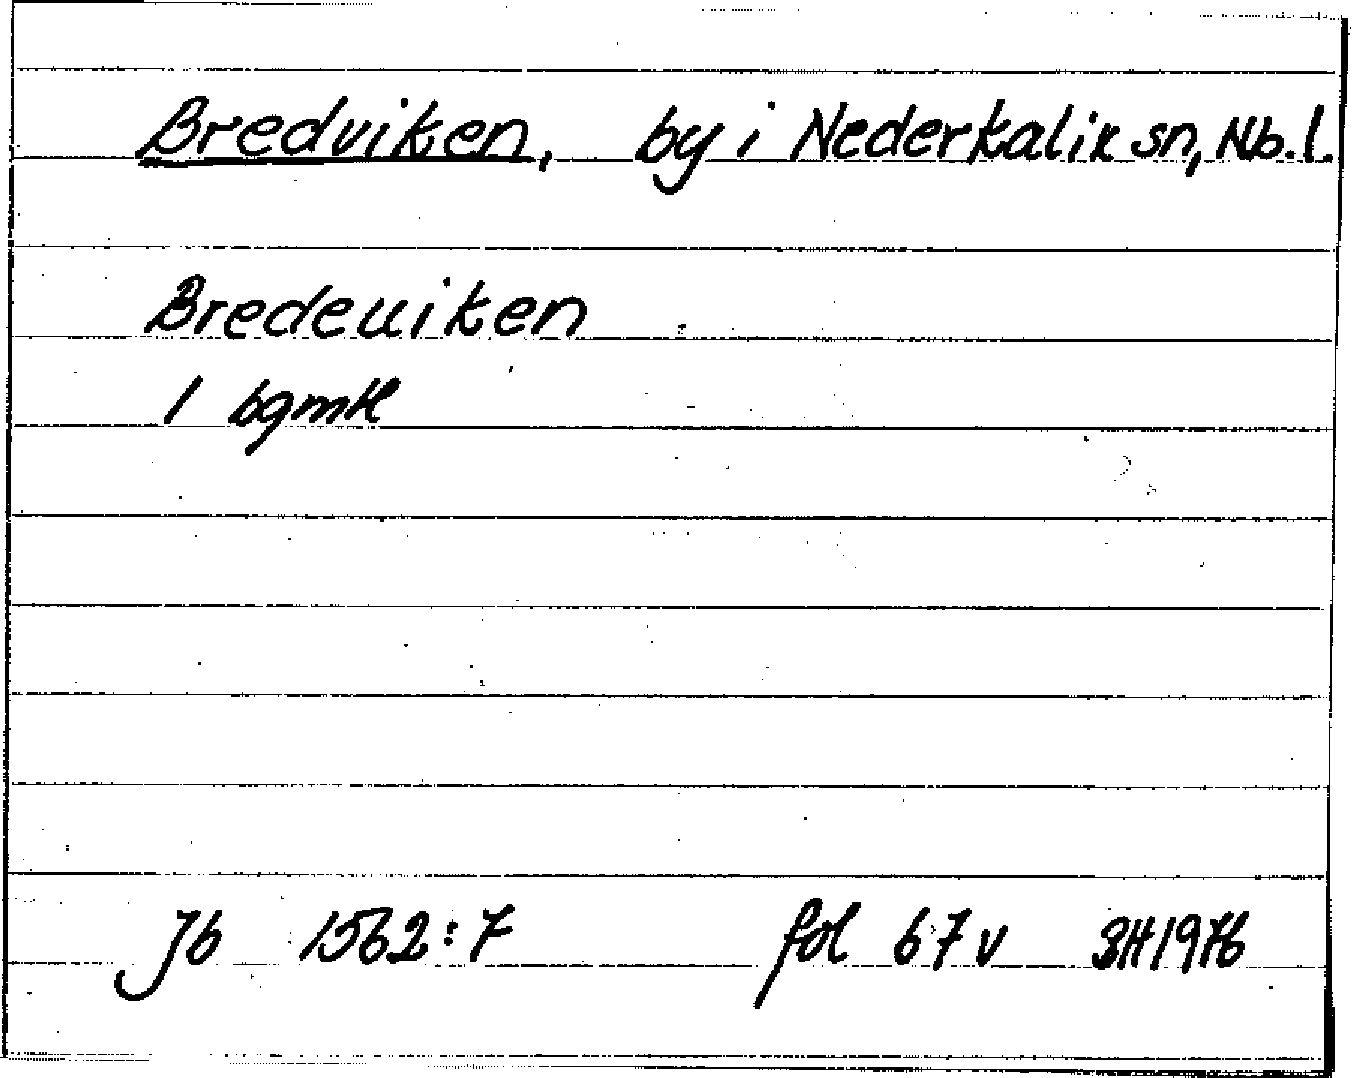 Bredviken, by i Nederkalix sn, Nb.l.
Bredeuiken
1 bgmk
Jb 1562:7 fol 67v SH1976